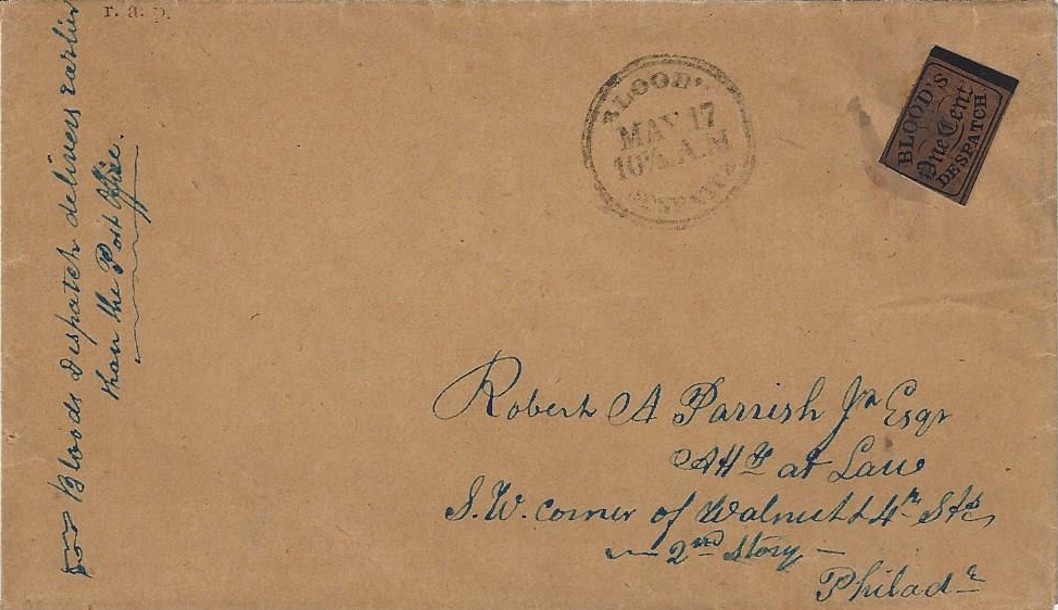 r. a. p.
Bloods Despatch delivers earlier
than the Post Office.
BLOOD'S
MAY 17
10½ A.M
DESPATCH
BLOOD'S
One Cent
DESPATCH
Robert A Parrish Jr Esqr
Atty at Law
S.W. corner of Walnut & 4th Sts
2nd Story
Philada